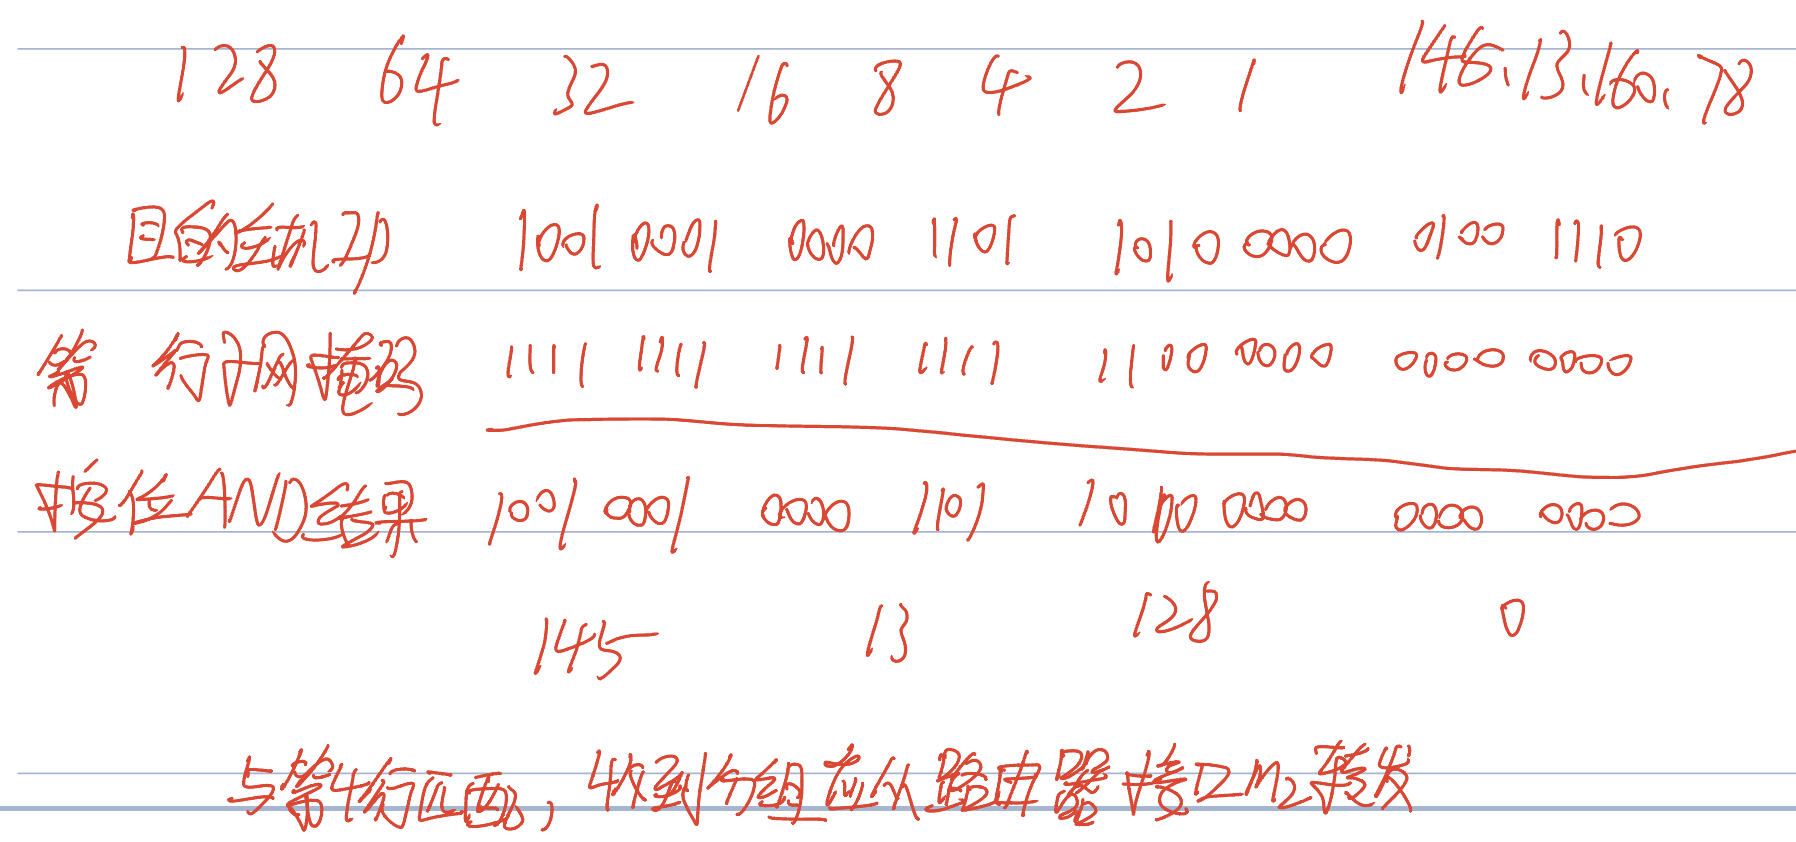 128 64 32 16 8 4 2 1 146.13.160.78
目的主机IP 1001 0001 0000 1101 1010 0000 0100 1110
第 行子网掩码 1111 1111 1111 1111 1100 0000 0000 0000
按位AND结果 1001 0001 0000 1101 1000 0000 0000 0000
145 13 128 0
与第4行匹配,收到分组应从路由器接口m2转发